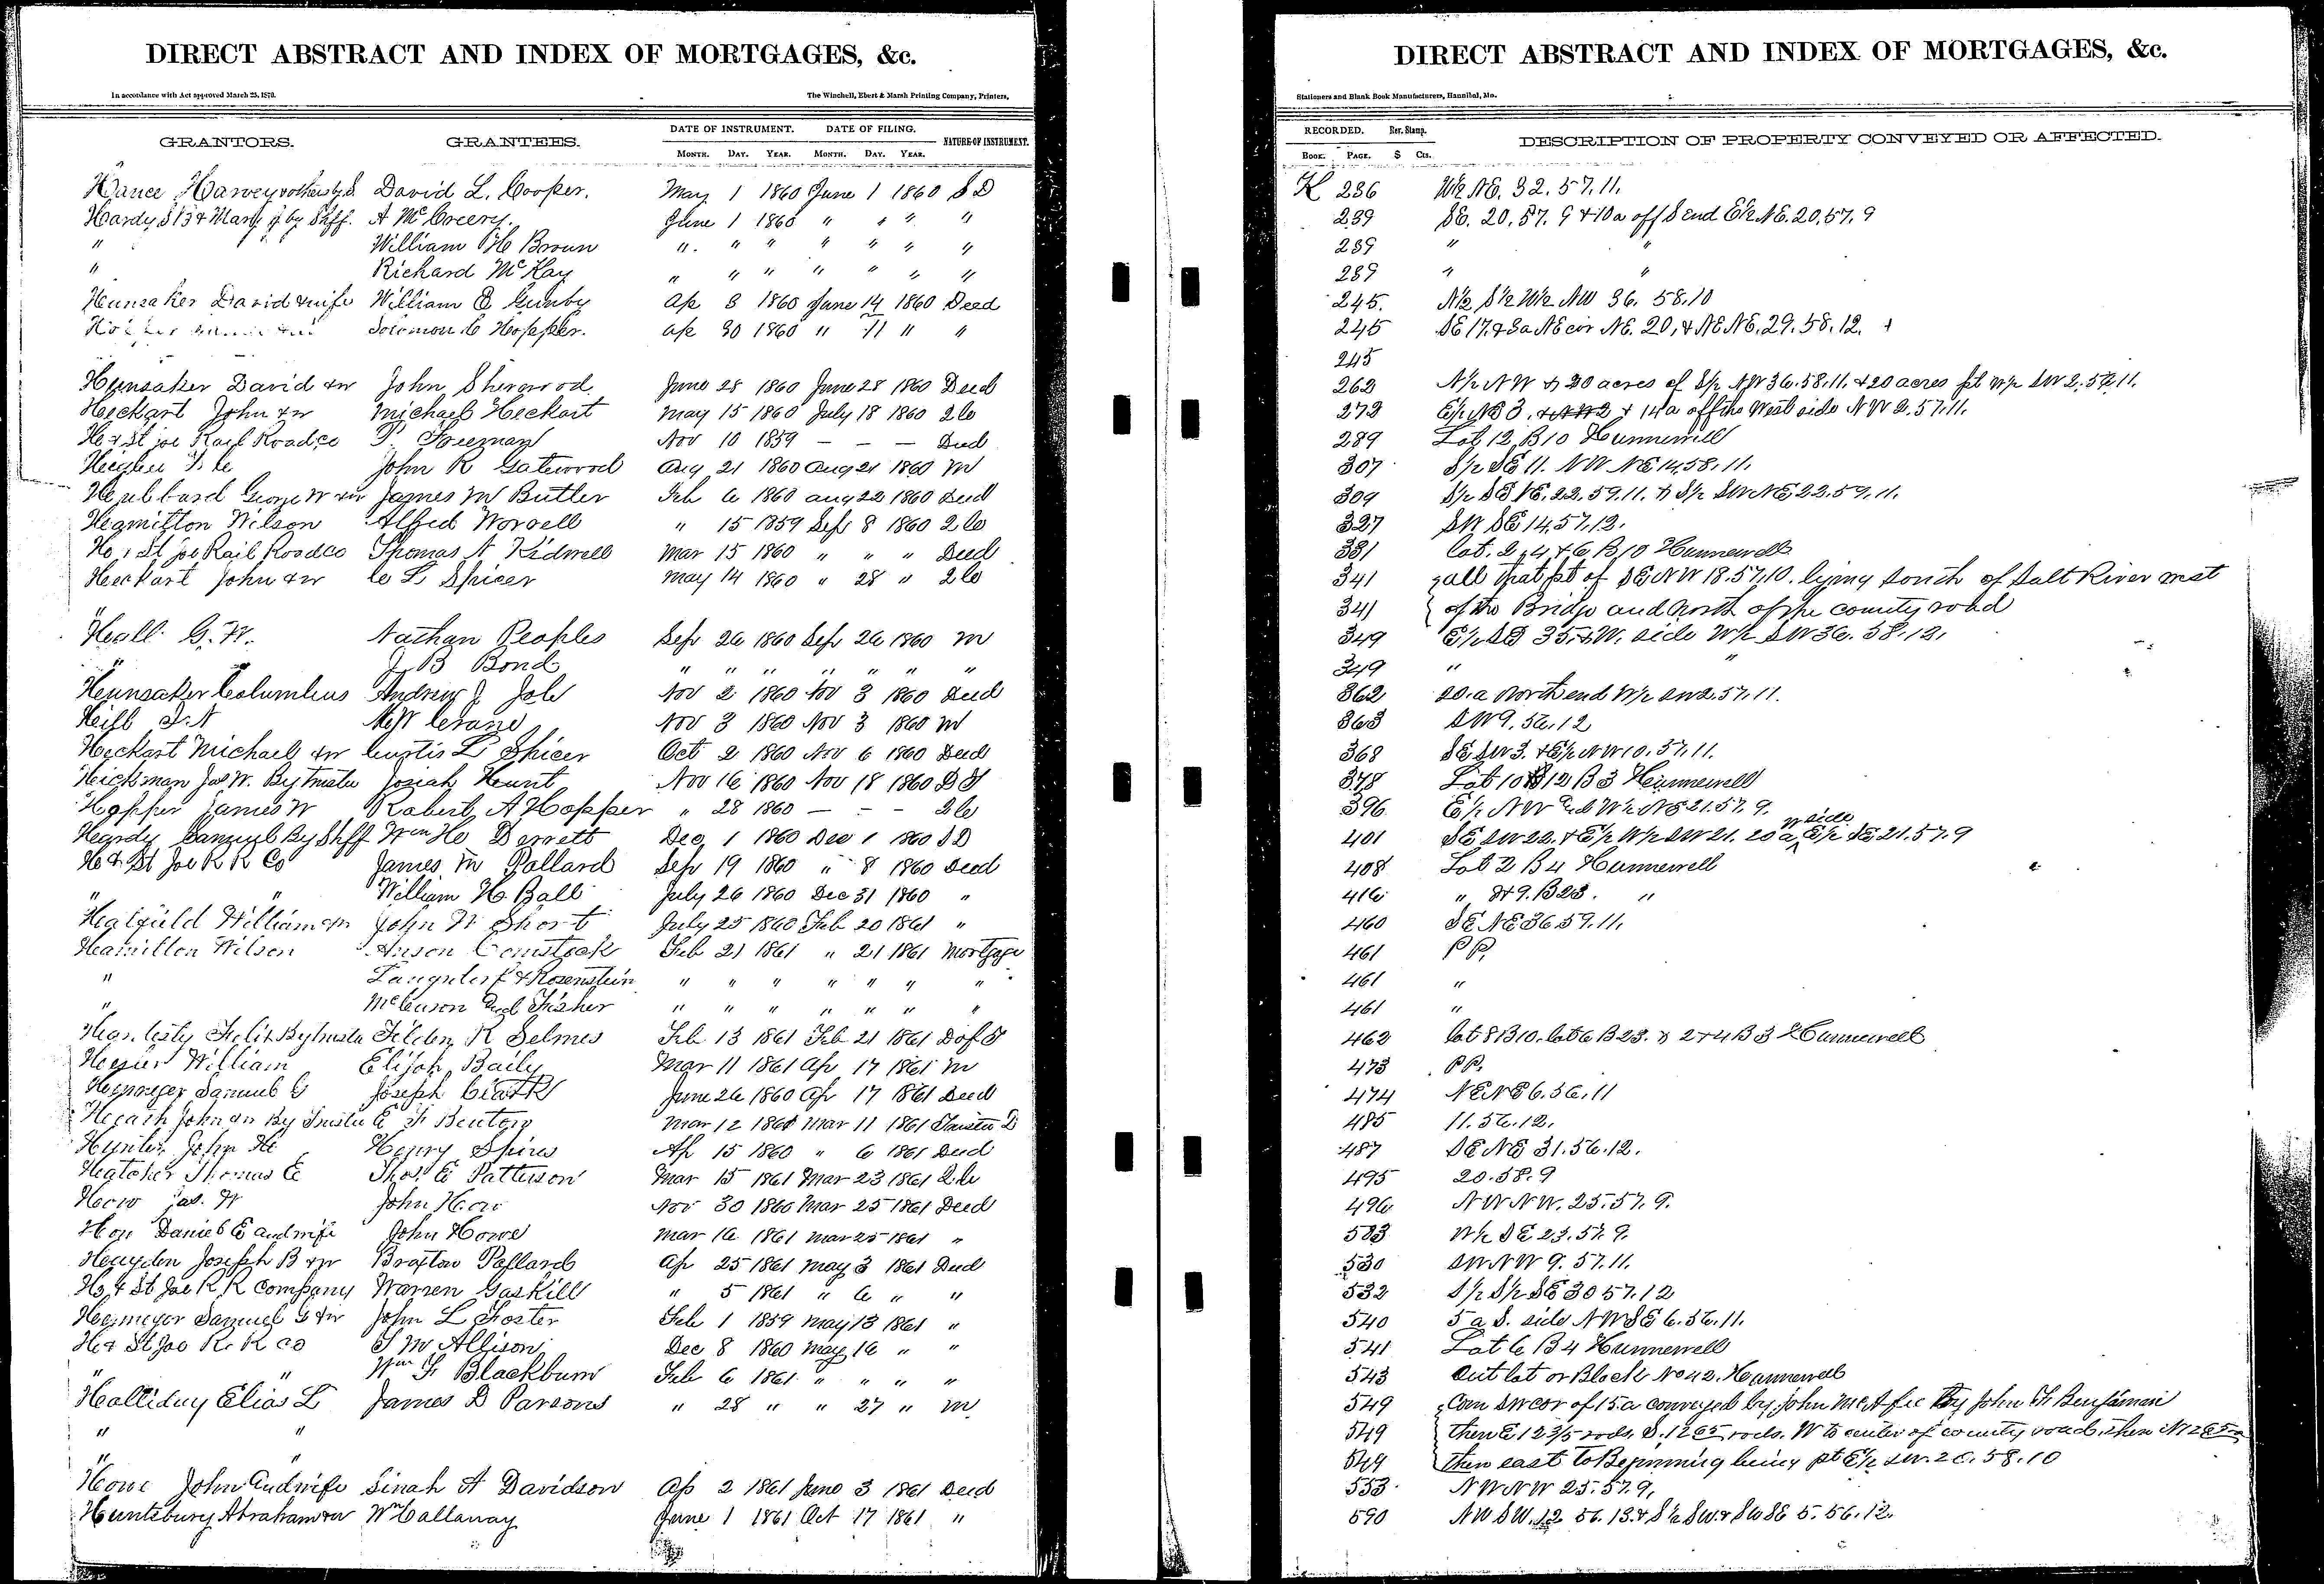 DIRECT ABSTRACT AND INDEX OF MORTGAGES, &c.
In accordance with Act approved March 25, 1870.
The Winchell, Ebert & Marsh Printing Company, Printers,
GRANTORS. GRANTEES. DATE OF INSTRUMENT. DATE OF FILING. NATURE OF INSTRUMENT.
MONTH. DAY. YEAR. MONTH. DAY. YEAR.
Hance Harvey David L. Cooper. May 1 1860 June 1 1860 S D
Hardy S B & Mary J by Shff. A McCreery. June 1 1860 " " " "
" William H Brown " " " " " " "
" Richard McKay " " " " " " "
Hunsaker David & wife William B Gunby Ap 3 1860 June 14 1860 Deed
Solomon C Hopper. Ap 30 1860 " 11 " "
Hunsaker David & w John Sherwood June 28 1860 June 28 1860 Deed
Heckart John & w Michael Heckart May 15 1860 July 18 1860 2 C
H & St Joe Rail Road co P. Freeman Nov 10 1859 — — — Deed
John R Gatewood Aug 21 1860 Aug 21 1860 M
Hubbard George W & w James M Butler Feb 6 1860 Aug 22 1860 Deed
Hamilton Wilson Alfred Worrell " 15 1859 Sep 8 1860 2 C
H & St Joe Rail Road co Thomas A Kidwell Mar 15 1860 " " " Deed
Heckart John & w C L Spicer May 14 1860 " 28 " 2 C
"
Hall G. W. Nathan Peoples Sep 26 1860 Sep 26 1860 M
" J B Bond " " " " " " "
Hunsaker Columbus Andrew J Job Nov 2 1860 Nov 3 1860 Deed
Hill Nov 3 1860 Nov 3 1860 M
Heckart Michael & w Curtis L Spicer Oct 2 1860 Nov 6 1860 Deed
Hickman Jas W. By Trustee Josiah Hunt Nov 16 1860 Nov 18 1860 D T
Hopper James W Robert A Hopper " 28 1860 — — 2 C
Hardy Samuel By Shff Wm H Derrett Dec 1 1860 Dec 1 1860 S D
H & St Joe R R Co James M Pollard Sep 19 1860 " 8 1860 Deed
" " William H Ball July 26 1860 Dec 31 1860 "
Hatfield William & w John W Short July 25 1860 Feb 20 1861 "
Hamilton Wilson Anson Comstock Feb 21 1861 " 21 1861 Mortgage
" & Rosenstein " " " " " " "
" and Fisher " " " " " " "
By Trustee Tilden R Selmes Feb 13 1861 Feb 21 1861 D of T
William Elijah Baily Mar 11 1861 Ap 17 1861 M
Samuel G Joseph Clark June 26 1860 Ap 17 1861 Deed
Heath John & w By Trustee E F Benton Mar 12 1861 Mar 11 1861 Trustee D
Hunter John H Henry Spires Ap 15 1860 " 6 1861 Deed
Hatcher Thomas E Thos E Patterson Mar 15 1861 Mar 23 1861 2 C
How Jas. W John How Nov 30 1860 Mar 25 1861 Deed
How Daniel E and wife John Howe Mar 16 1861 Mar 25 1861 "
Hayden Joseph B & w Braxton Pollard Ap 25 1861 May 3 1861 Deed
H & St Joe R R Company Warren Gaskill " 5 1861 " 6 " "
Samuel G & w John L Foster Feb 1 1859 May 13 1861 "
H & St Joe R. R co S M Allison Dec 8 1860 May 16 " "
" " Wm F Blackburn Feb 6 1861 " " " "
Halliday Elias L James D Parsons " 28 " " 27 " M
" "
" "
Howe John and wife Sinah A Davidson Ap 2 1861 June 3 1861 Deed
Huntsbury Abraham & w W Callaway June 1 1861 Oct 17 1861 "
DIRECT ABSTRACT AND INDEX OF MORTGAGES, &c.
Stationers and Blank Book Manufacturers, Hannibal, Mo.
RECORDED. Rev. Stamp. DESCRIPTION OF PROPERTY CONVEYED OR AFFECTED.
BOOK. PAGE. $ Cts.
K 236 W½ NE. 32. 57. 11.
239 SE. 20. 57. 9 & 10a off S end E½ NE. 20. 57. 9
239 " "
239 " "
245. N½ S½ W½ NW 36. 58. 10
245 SE 17. & 3a NE cor NE. 20, & NE NE. 29. 58. 12.
245
262 N½ NW & 20 acres of S½ NW 36. 58. 11. & 20 acres pt W½ SW 2. 57. 11.
272 E½ NE 3. & 14a off the West side NW 2. 57. 11.
289 Lot 12 B 10 Hunnewell
307 S½ SE 11. NW NE 14. 58. 11.
309 S½ SE NE. 22. 59. 11. & S½ SW NE 22. 59. 11.
327 SW SE 14. 57. 12.
331 Lot. 2, 4 & 6 B 10 Hunnewell
341 all that pt of SE NW 18. 57. 10. lying south of Salt River west
341 of the Bridge and North of the county road
349 E½ SE 35. & W. side W½ SW 36. 58. 12.
349 " "
362 20. a North end W½ SW 2. 57. 11.
363 SW 9. 56. 12
368 SE SW 3. & E½ NW 10. 57. 11.
378 Lot 10 B 12 B 3 Hunnewell
396 E½ NW and W½ NE 21. 57. 9.
401 SE SW 22. & E½ W½ SW 21. 20 a W side E½ SE 21. 57. 9
408 Lot 2 B 4 Hunnewell
416 " & 9. B 23. "
460 SE NE 36 59. 11.
461 P P.
461 "
461 "
462 Lot 8 B 10. Lot 6 B 23. & 2 & 4 B 3 Hunnewell
473 P P.
474 NE NE 6. 56. 11
485 11. 56. 12.
487 SE NE 31. 56. 12.
495 20. 58. 9
496 NW NW. 25. 57. 9.
503 W½ SE 23. 57. 9.
530 SW NW 9. 57. 11.
532 S½ S½ SE 30 57. 12
540 5 a S. side NW SE 6. 56. 11.
541 Lot 6 B 4 Hunnewell
543 Out lot or Block No 42. Hunnewell
549 Com SW cor of 15. a conveyed by John McAfee by John F Benjamin
549 then E 12 3/5 rods, S. rods. W to center of county road, then N
549 then east to Beginning being pt E½ SW. 26. 58. 10
553 NW NW 25. 57. 9.
590 NW SW. 12 56. 13. & S½ SW. & SW SE 5. 56. 12.